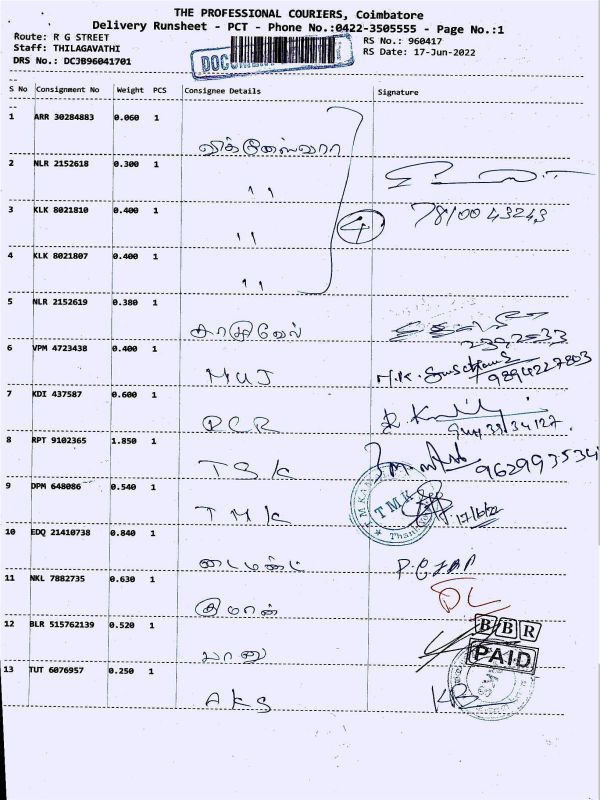 THE PROFESSIONAL COURIERS, Coimbatore
Delivery Runsheet - PCT - Phone No.:0422-3505555 - Page No.:1
Route: R G STREET
RS No.: 960417
Staff: THILAGAVATHI
RS Date: 17-Jun-2022
DRS No.: DCJB96041701
S No Consignment No Weight PCS Consignee Details Signature
1 ARR 30284883 0.060 1
விக்னேஸ்வரா
2 NLR 2152618 0.300 1
11
3 KLK 8021810 0.400 1
7810043243
11
4
4 KLK 8021807 0.400 1
11
5 NLR 2152619 0.380 1
6 VPM 4723438 0.400 1
MUJ
9894227803
7 KDI 437587 0.600 1
PCR
8 RPT 9102365 1.850 1
TSK
9 DPM 648086 0.540 1
TMK
TMK
17/6/22
10 EDQ 21410738 0.840 1
டைமண்ட்
11 NKL 7882735 0.630 1
குமரன்
12 BLR 515762139 0.520 1
BBR
பானு
PAID
13 TUT 6076957 0.250 1
AKS